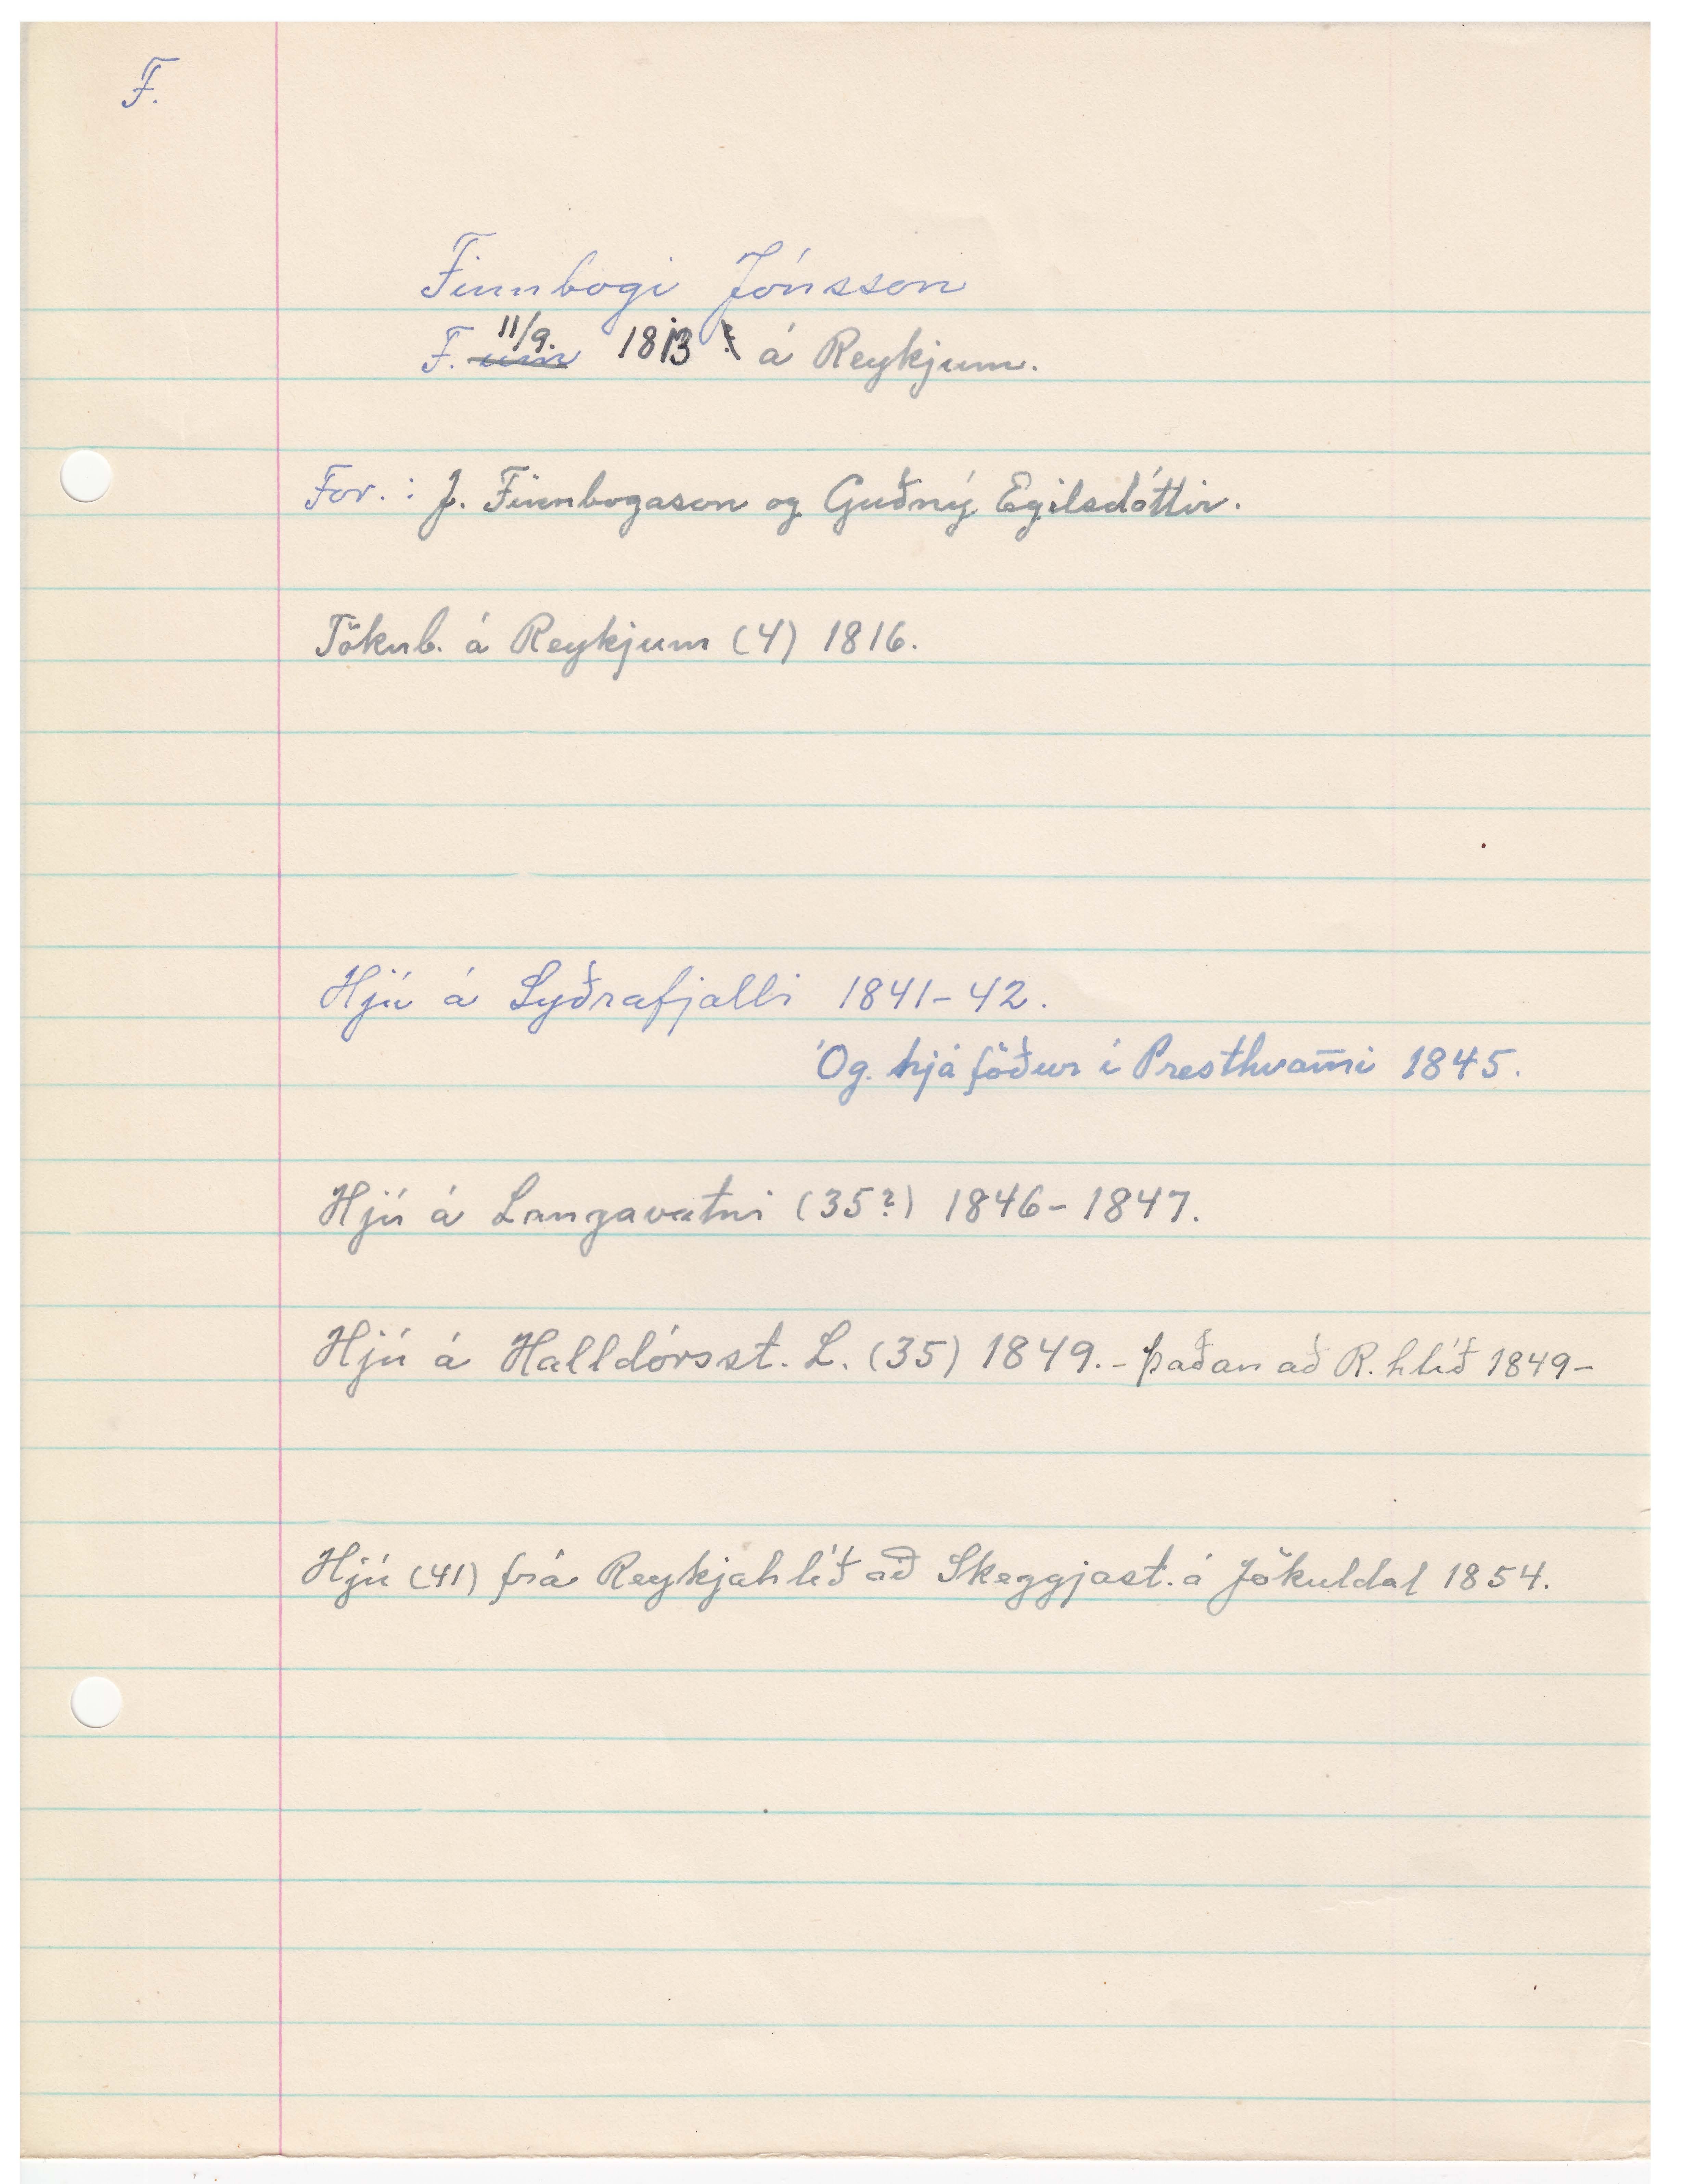 F.
Finnbogi Jónsson
F. 11/9. 1813 á Reykjum.
For.: J. Finnbogason og Guðný Egilsdóttir.
Tökub. á Reykjum (4) 1816.
Hjú á Lyðrafjalli 1841-42.
Óg. hjá föður í Presthvam̄i 1845.
Hjú á Langavatni (35?) 1846-1847.
Hjú á Halldórsst. L. (35) 1849.- þaðan að R.hlíð 1849-
Hjú (41) frá Reykjahlíð að Skeggjast. á Jökuldal 1854.